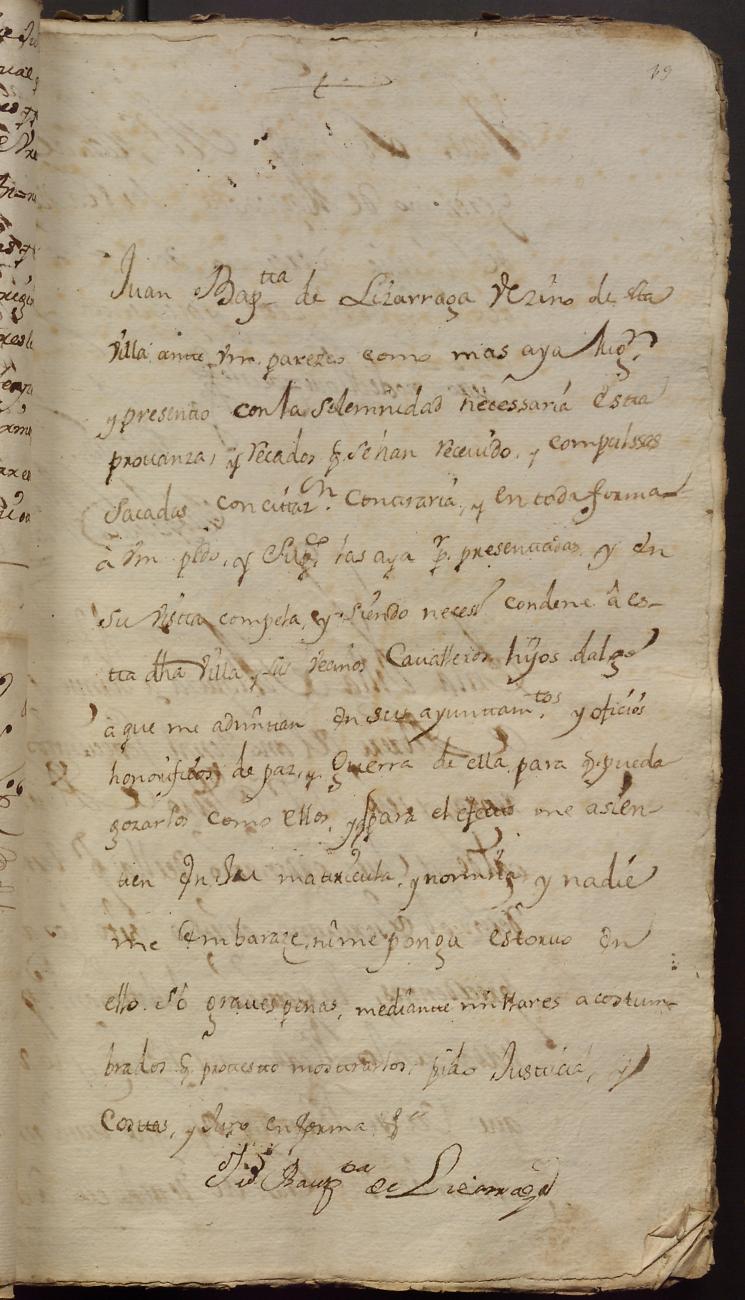 19
Juan Bap.tta de Lizarraga Vezino de esta
Villa ante Vm. parezco como mas aya lugr.
y presento con la solemnidad necessaria esta
prouanza, y recados q. se han receuido, y compulssas
sacadas con citaz.on Contraria, y en toda forma
à Vm pido, y Sup.co las aya pr. presentadas y en
su vista competa, y siendo neces.o condene à es-
ta dha Villa, y sus Vecinos Cavalleros hijos dalgo
à que me admitan en sus ayuntam.tos y oficios
honorificos de paz, y Guerra de ella para q. pueda
gozarlos como ellos, y para el efecto me asien-
ten en su matricula, y nomina y nadie
me embaraze, ni me ponga estoruo en
ello. Só graues penas, mediante millares acostum-
brados q. protesto mostrarlos, pido Justicia, y
Costas, y Juro en forma &.a
Baup.ta de Lizarraga